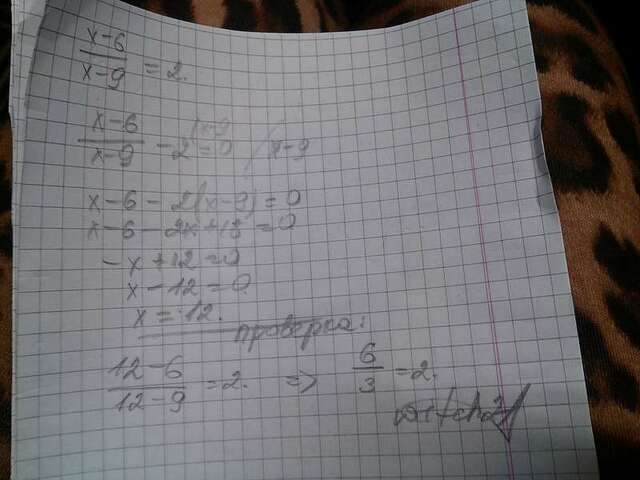 x-6/x-9 = 2.
x-6/x-9 - 2 = 0 /x-9
x-6-2(x-9)=0
x-6-2x+18=0
-x+12=0
x-12=0
x=12.
проверка:
12-6/12-9 = 2. => 6/3 = 2.